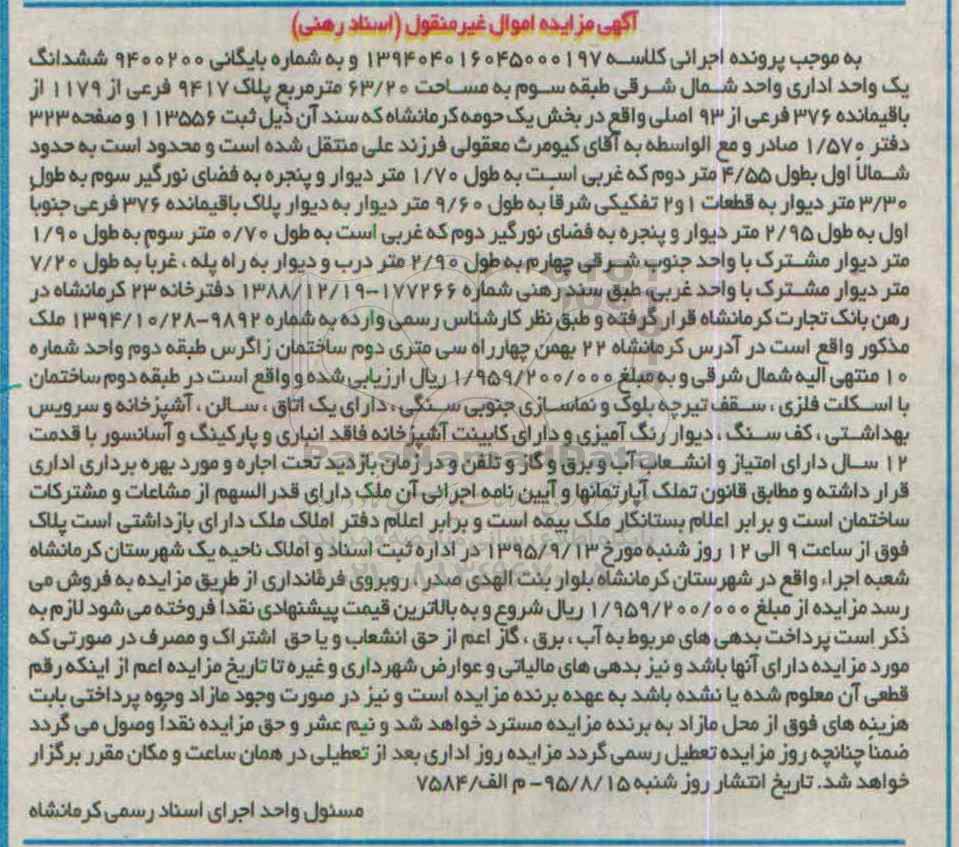 آگهی مزایده اموال غیرمنقول (اسناد رهنی)
به موجب پرونده اجرائی کلاسه ۱۳۹۴۰۴۰۱۶۰۴۵۰۰۰۱۹۷ و به شماره بایگانی ۹۴۰۰۲۰۰ ششدانگ
یک واحد اداری واحد شمال شرقی طبقه سوم به مساحت ۶۳/۲۰ مترمربع پلاک ۹۴۱۷ فرعی از ۱۱۷۹ از
باقیمانده ۳۷۶ فرعی از ۹۳ اصلی واقع در بخش یک حومه کرمانشاه که سند آن ذیل ثبت ۱۱۳۵۵۶ و صفحه ۳۲۳
دفتر ۱/۵۷۰ صادر و مع الواسطه به آقای کیومرث معقولی فرزند علی منتقل شده است و محدود است به حدود
شمالاً اول بطول ۴/۵۵ متر دوم که غربی است به طول ۱/۷۰ متر دیوار و پنجره به فضای نورگیر سوم به طول
۳/۳۰ متر دیوار به قطعات ۱و۲ تفکیکی شرقاً به طول ۹/۶۰ متر دیوار به دیوار پلاک باقیمانده ۳۷۶ فرعی جنوباً
اول به طول ۲/۹۵ متر دیوار و پنجره به فضای نورگیر دوم که غربی است به طول ۰/۷۰ متر سوم به طول ۱/۹۰
متر دیوار مشترک با واحد جنوب شرقی چهارم به طول ۲/۹۰ متر درب و دیوار به راه پله ، غرباً به طول ۷/۲۰
متر دیوار مشترک با واحد غربی، طبق سند رهنی شماره ۱۷۷۲۶۶-۱۳۸۸/۱۲/۱۹ دفترخانه ۲۳ کرمانشاه در
رهن بانک تجارت کرمانشاه قرار گرفته و طبق نظر کارشناس رسمی وارده به شماره ۹۸۹۲-۱۳۹۴/۱۰/۲۸ ملک
مذکور واقع است در آدرس کرمانشاه ۲۲ بهمن چهارراه سی متری دوم ساختمان زاگرس طبقه دوم واحد شماره
۱۰ منتهی الیه شمال شرقی و به مبلغ ۱/۹۵۹/۲۰۰/۰۰۰ ریال ارزیابی شده و واقع است در طبقه دوم ساختمان
با اسکلت فلزی ، سقف تیرچه بلوک و نماسازی جنوبی سنگی ، دارای یک اتاق ، سالن ، آشپزخانه و سرویس
بهداشتی ، کف سنگ ، دیوار رنگ آمیزی و دارای کابینت آشپزخانه فاقد انباری و پارکینگ و آسانسور با قدمت
۱۲ سال دارای امتیاز و انشعاب آب و برق و گاز و تلفن و در زمان بازدید تحت اجاره و مورد بهره برداری اداری
قرار داشته و مطابق قانون تملک آپارتمانها و آیین نامه اجرائی آن ملک دارای قدرالسهم از مشاعات و مشترکات
ساختمان است و برابر اعلام بستانکار ملک بیمه است و برابر اعلام دفتر املاک ملک دارای بازداشتی است پلاک
فوق از ساعت ۹ الی ۱۲ روز شنبه مورخ ۱۳۹۵/۹/۱۳ در اداره ثبت اسناد و املاک ناحیه یک شهرستان کرمانشاه
شعبه اجراء واقع در شهرستان کرمانشاه بلوار بنت الهدی صدر ، روبروی فرمانداری از طریق مزایده به فروش می
رسد مزایده از مبلغ ۱/۹۵۹/۲۰۰/۰۰۰ ریال شروع و به بالاترین قیمت پیشنهادی نقداً فروخته می شود لازم به
ذکر است پرداخت بدهی های مربوط به آب ، برق ، گاز اعم از حق انشعاب و یا حق اشتراک و مصرف در صورتی که
مورد مزایده دارای آنها باشد و نیز بدهی های مالیاتی و عوارض شهرداری و غیره تا تاریخ مزایده اعم از اینکه رقم
قطعی آن معلوم شده یا نشده باشد به عهده برنده مزایده است و نیز در صورت وجود مازاد وجوه پرداختی بابت
هزینه های فوق از محل مازاد به برنده مزایده مسترد خواهد شد و نیم عشر و حق مزایده نقداً وصول می گردد
ضمناً چنانچه روز مزایده تعطیل رسمی گردد مزایده روز اداری بعد از تعطیلی در همان ساعت و مکان مقرر برگزار
خواهد شد. تاریخ انتشار روز شنبه ۹۵/۸/۱۵- م الف/۷۵۸۴
مسئول واحد اجرای اسناد رسمی کرمانشاه
ParsNamadData